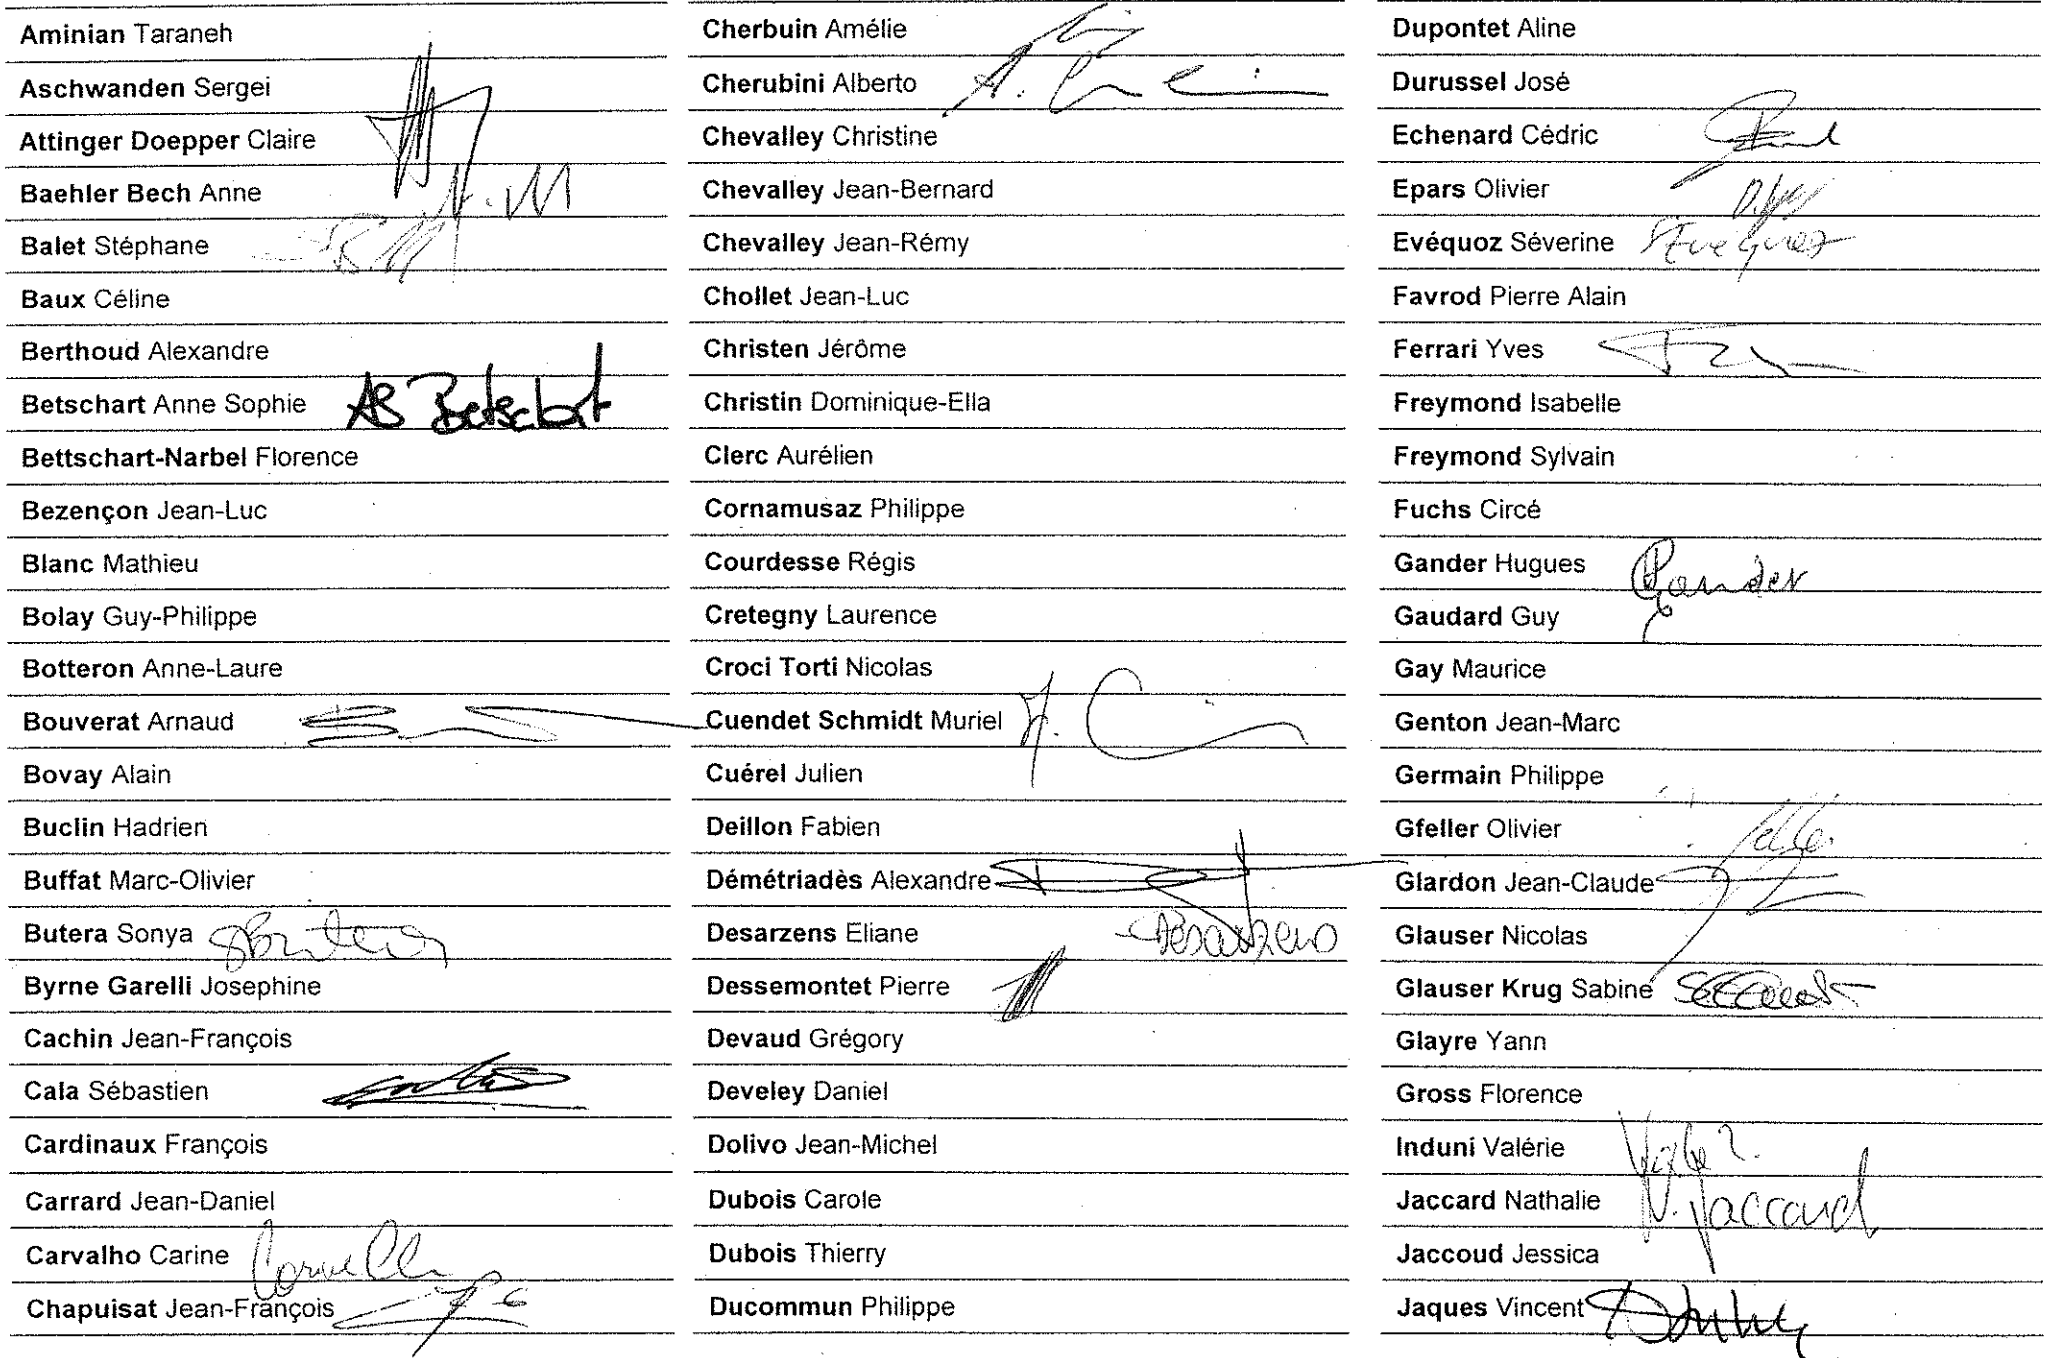 Aminian Taraneh
Aschwanden Sergei
Attinger Doepper Claire
Baehler Bech Anne
Balet Stéphane
Baux Céline
Berthoud Alexandre
Betschart Anne Sophie AS Betschart
Bettschart-Narbel Florence
Bezençon Jean-Luc
Blanc Mathieu
Bolay Guy-Philippe
Botteron Anne-Laure
Bouverat Arnaud
Bovay Alain
Buclin Hadrien
Buffat Marc-Olivier
Butera Sonya SButera
Byrne Garelli Josephine
Cachin Jean-François
Cala Sébastien
Cardinaux François
Carrard Jean-Daniel
Carvalho Carine
Chapuisat Jean-François
Cherbuin Amélie
Cherubini Alberto
Chevalley Christine
Chevalley Jean-Bernard
Chevalley Jean-Rémy
Chollet Jean-Luc
Christen Jérôme
Christin Dominique-Ella
Clerc Aurélien
Cornamusaz Philippe
Courdesse Régis
Cretegny Laurence
Croci Torti Nicolas
Cuendet Schmidt Muriel
Cuérel Julien
Deillon Fabien
Démétriadès Alexandre
Desarzens Eliane Desarzens
Dessemontet Pierre
Devaud Grégory
Develey Daniel
Dolivo Jean-Michel
Dubois Carole
Dubois Thierry
Ducommun Philippe
Dupontet Aline
Durussel José
Echenard Cédric
Epars Olivier
Evéquoz Séverine SEvéquoz
Favrod Pierre Alain
Ferrari Yves
Freymond Isabelle
Freymond Sylvain
Fuchs Circé
Gander Hugues Gander
Gaudard Guy
Gay Maurice
Genton Jean-Marc
Germain Philippe
Gfeller Olivier
Glardon Jean-Claude
Glauser Nicolas
Glauser Krug Sabine
Glayre Yann
Gross Florence
Induni Valérie
Jaccard Nathalie N. Jaccard
Jaccoud Jessica
Jaques Vincent